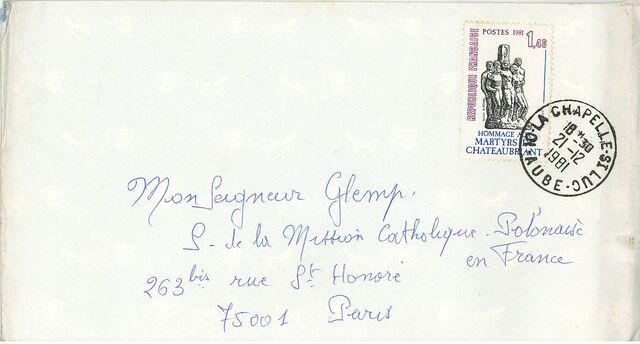 POSTES 1981
1,40
REPUBLIQUE FRANÇAISE
HOMMAGE A
MARTYRS
CHATEAUBRIANT
10-LA CHAPELLE-ST LUC
18 H 30
21-12
1981
AUBE
MonSeigneur Glemp.
S- de la Mission Catholique - Polonaise
en France
263 bis rue St Honoré
75001 Paris